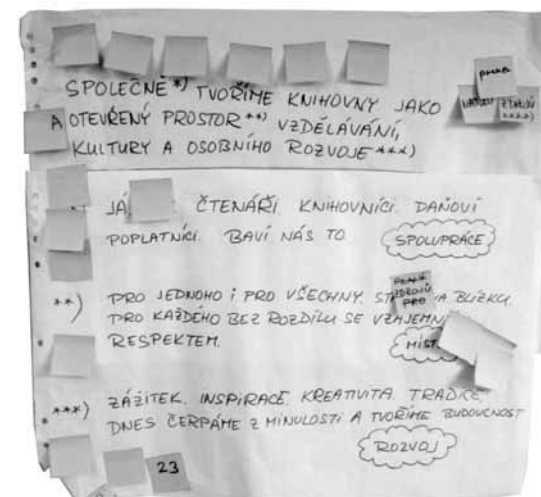 SPOLEČNĚ*) TVOŘÍME KNIHOVNY JAKO
A OTEVŘENÝ PROSTOR**) VZDĚLÁVÁNÍ,
KULTURY A OSOBNÍHO ROZVOJE***)
ZDROJŮ
****)
JÁ ČTENÁŘI. KNIHOVNÍCI. DAŇOVÍ
POPLATNÍCI. BAVÍ NÁS TO. SPOLUPRÁCE
**) PRO JEDNOHO i PRO VŠECHNY. ZDROJŮ PRO A BLÍZKU.
PRO KAŽDÉHO BEZ ROZDÍLU SE VZÁJEMN
RESPEKTEM. MÍST
***) ZÁŽITEK. INSPIRACE. KREATIVITA. TRADICE.
DNES ČERPÁME Z MINULOSTI A TVOŘÍME BUDOUCNOST
ROZVOJ
23